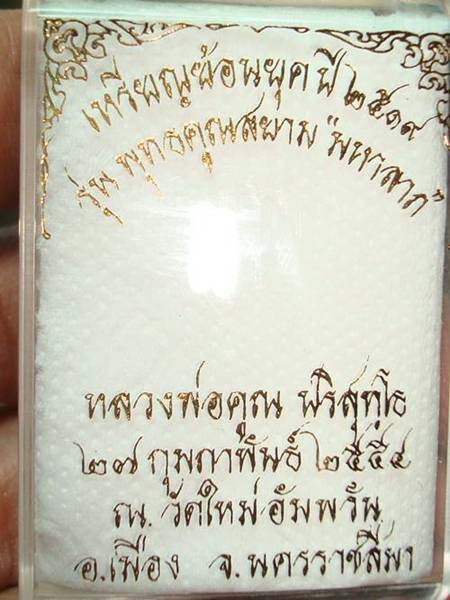 เหรียญย้อนยุค ปี ๒๕๑๙
รุ่น พุทธคุณสยาม "มหาลาภ"
หลวงพ่อคูณ ปริสุทฺโธ
๒๗ กุมภาพันธ์ ๒๕๕๔
ณ. วัดใหม่อัมพวัน
อ.เมือง จ.นครราชสีมา